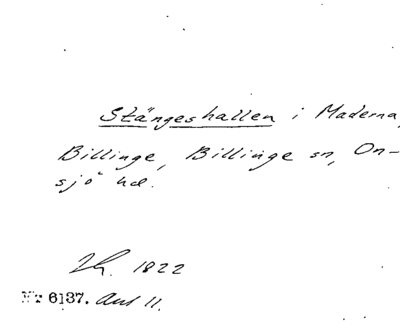 Stångeshallen i Maderna,
Billinge, Billinge sn, On-
sjö hd.
Lh. 1822
Nr 6137. Ant 11.